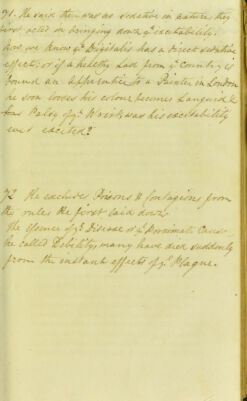 71. He said ther was no sedative in nature, they
first acted in bringing down yᵉ excitability.
how we know yᵗ Digitalis has a direct sedative
effect; or if a healthy Lad from yᵉ Country is
bound an apprentice to a Painter in London
he soon looses his colour becomes Languid &
has Palsy of yᵉ Wrist, was his excitability
ever excited?
72 He excludes Poisons & Contagions from
the rules he first laid down
The Essence of yᵉ Disease or yᵉ Proximate Cause
he called Debility, many have died suddenly
from the instant effects of yᵉ Plague.